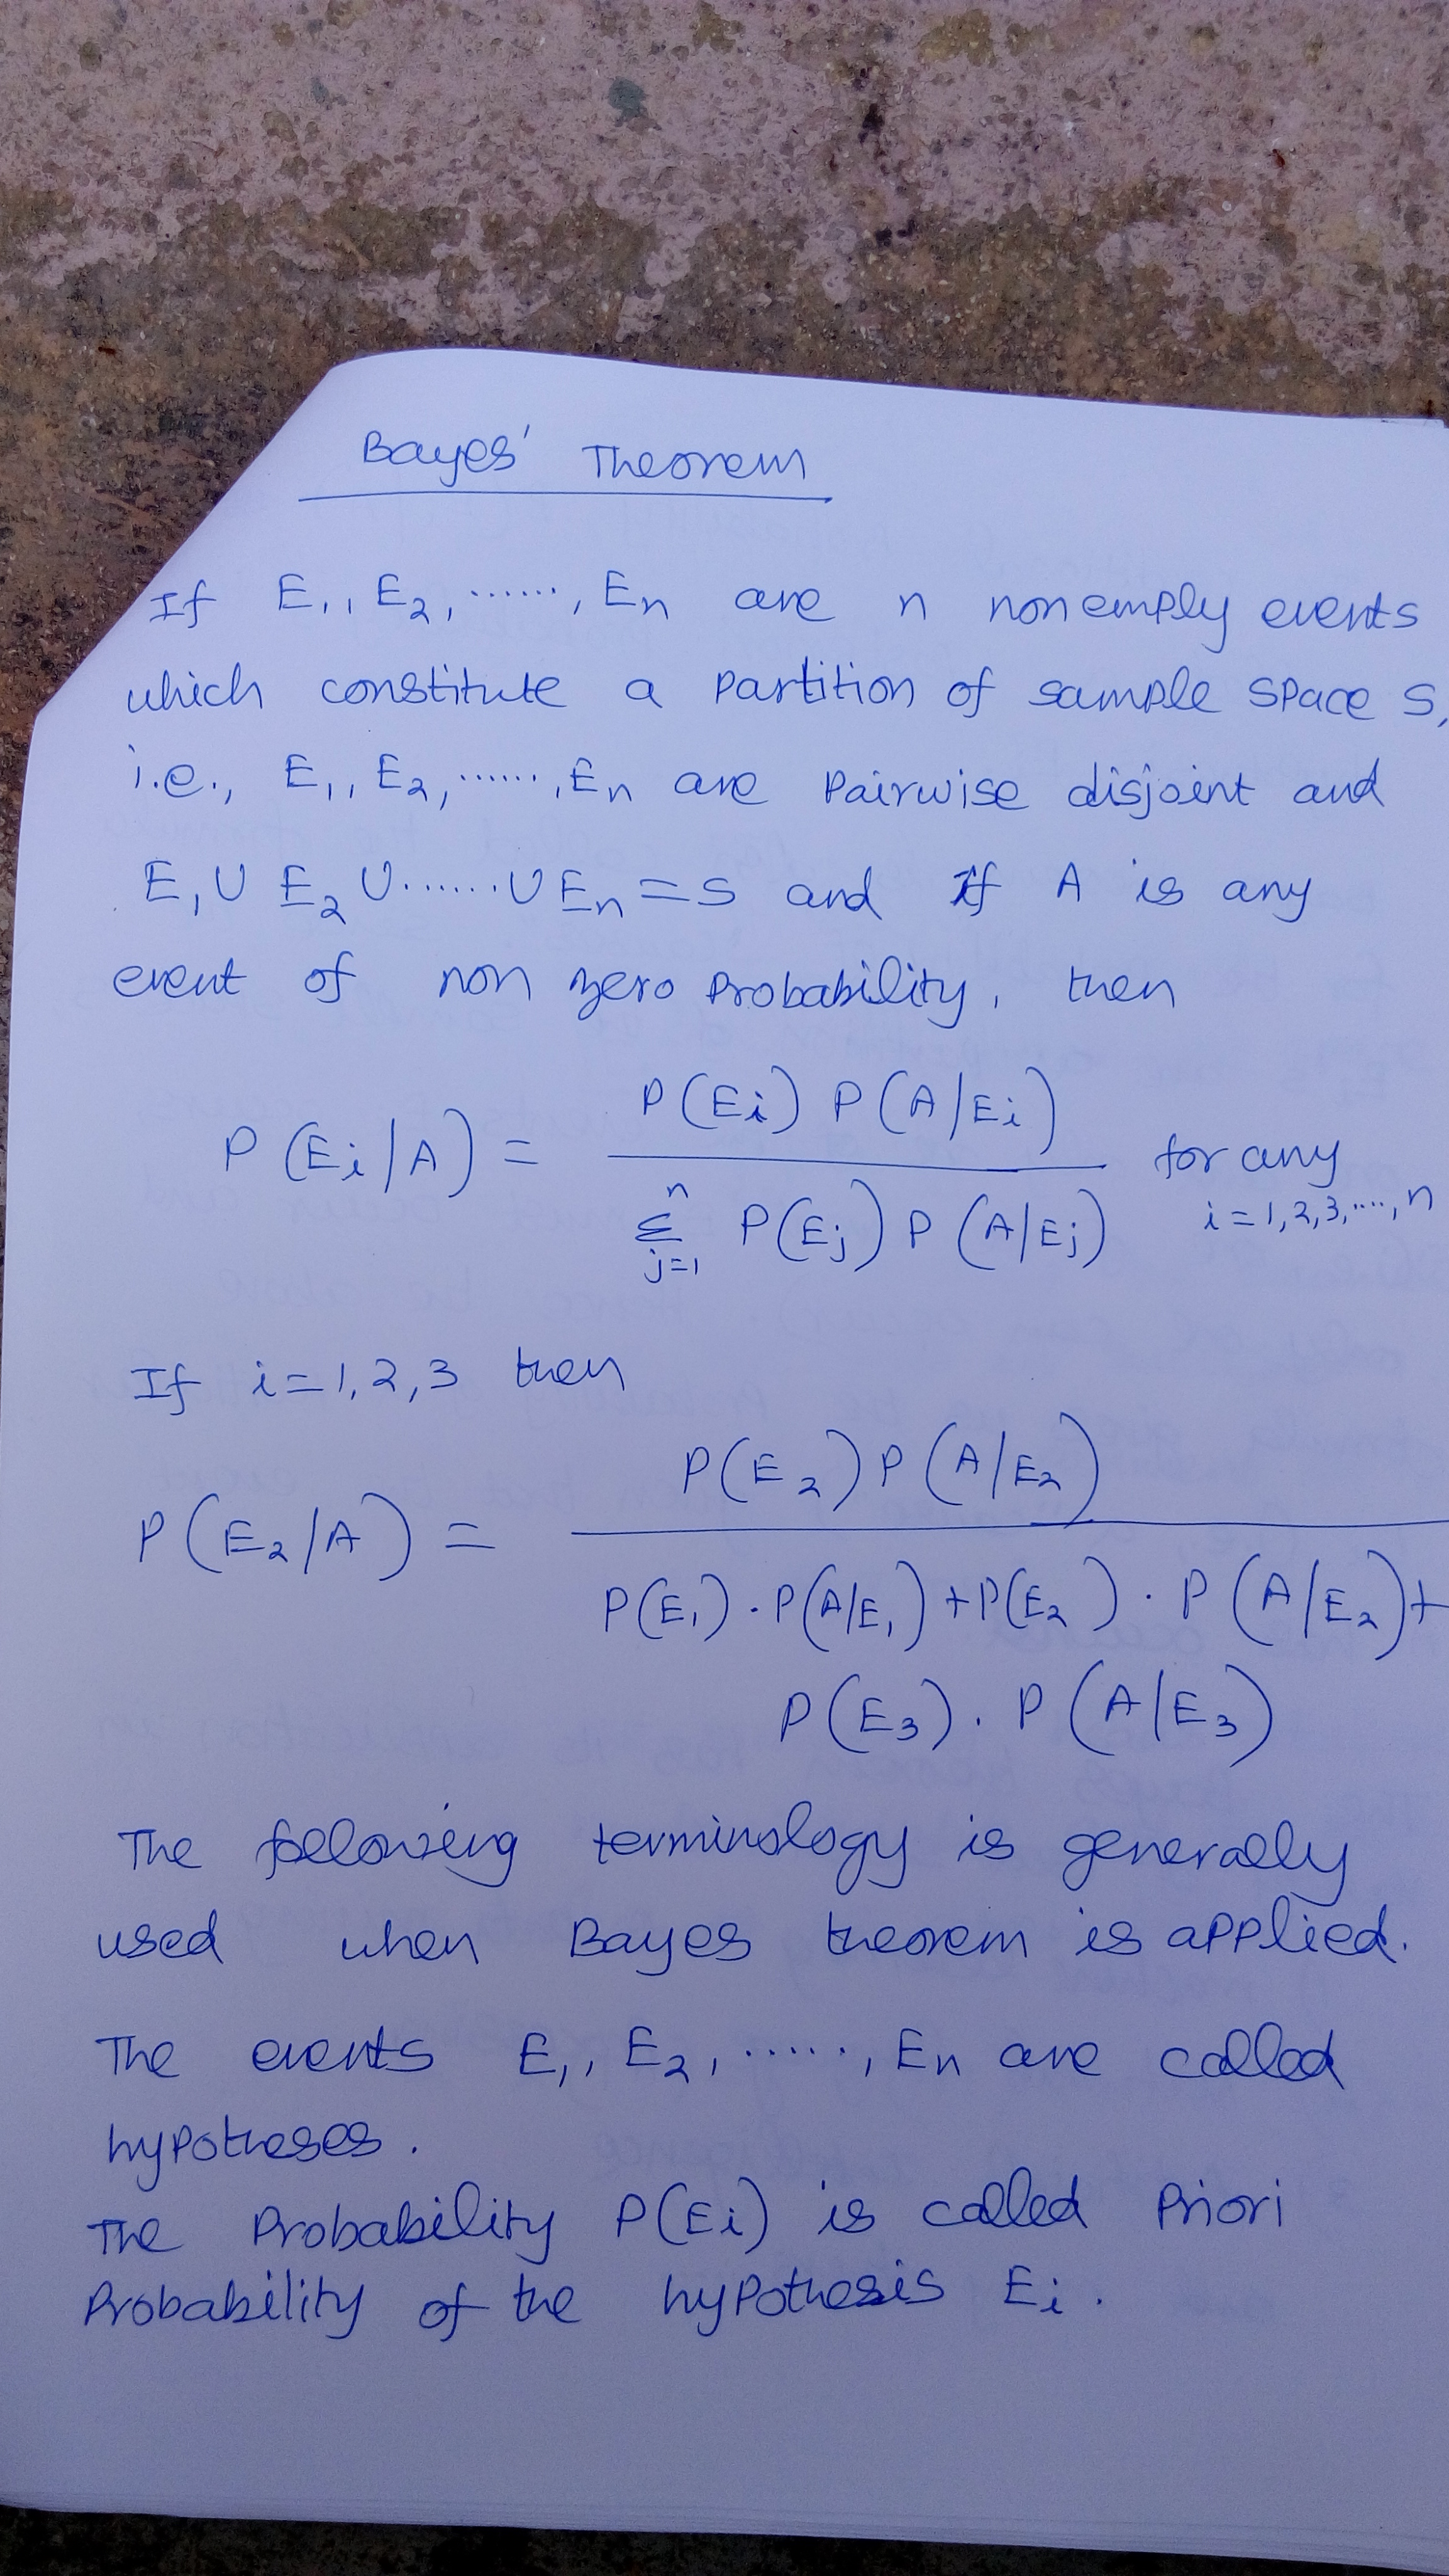 Bayes' Theorem
If E₁, E₂, ......, En are n nonemply events
which constitute a partition of sample space S,
i.e., E₁, E₂, ......, En are pairwise disjoint and
E₁ U E₂ U ....... U En = S and if A is any
event of non zero probability, then
P(Ei/A) = P(Ei) P(A/Ei) / Σ_{j=1}^{n} P(Ej) P(A/Ej) for any
i = 1,2,3,....,n
If i = 1, 2, 3 then
P(E₂/A) = P(E₂) P(A/E₂) / P(E₁) . P(A/E₁) + P(E₂) . P(A/E₂) +
P(E₃) . P(A/E₃)
The following terminology is generally
used when Bayes theorem is applied.
The events E₁, E₂, ....., En are called
hypotheses.
The Probability P(Ei) is called Priori
Probability of the hypothesis Ei.